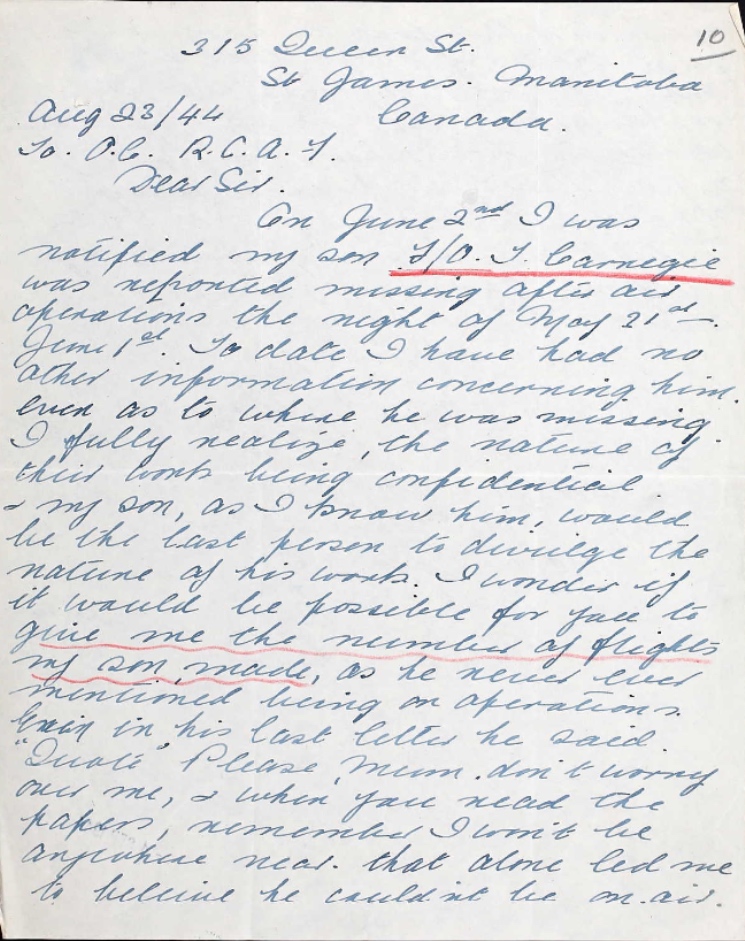 10
315 Queen St.
St James. Manitoba
Aug 23/44 Canada.
To. O.C. R.C.A.F.
Dear Sir.
On June 2nd I was
notified my son F/O. F. Carnegie
was reported missing after air
operations the night of May 31st -
June 1st. To date I have had no
other information concerning him.
even as to where he was missing.
I fully realize, the nature of
their work being confidential.
& my son, as I know him, would
be the last person to divulge the
nature of his work. I wonder if
it would be possible for you to
give me the number of flights
my son made, as he never ever
mentioned being on operations.
Even in his last letter he said.
"Quote" Please, Mum. don't worry
over me, & when you read the
papers, remember I won't be
anywhere near. that alone led me
to believe he couldn't be on air.